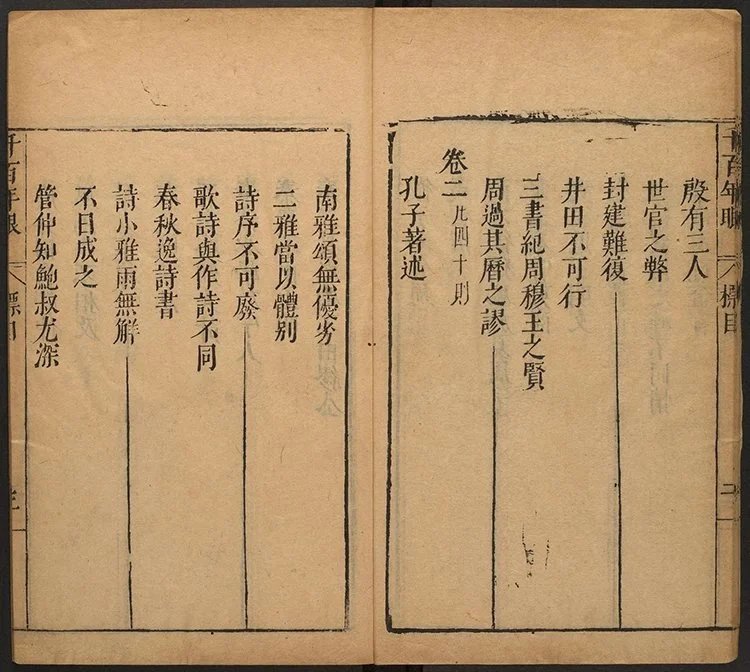 千百年眼 標目 二
殷有三人
世官之弊
封建難復
井田不可行
三書紀周穆王之賢
周過其曆之謬
卷二 凡四十則
孔子著述
南雅頌無優劣
二雅當以體別
詩序不可廢
歌詩與作詩不同
春秋逸詩書
詩小雅雨無觧
不日成之
管仲知鮑叔尤深
千百年眼 標目